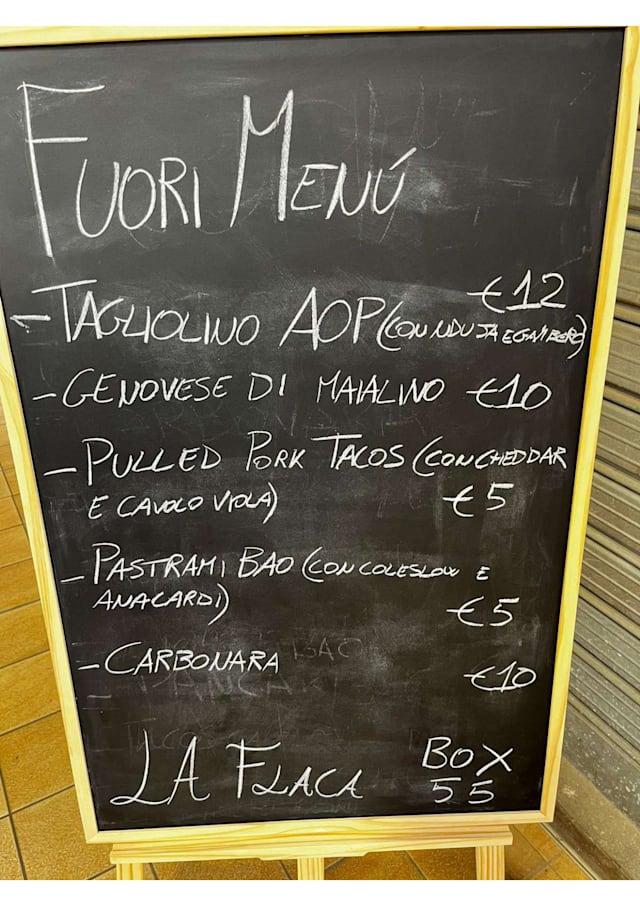 FUORI MENÚ
- TAGLIOLINO AOP (CON NDUJA E GAMBERO) €12
- GENOVESE DI MAIALINO €10
- PULLED PORK TACOS (CON CHEDDAR
E CAVOLO VIOLA) €5
- PASTRAMI BAO (CON COLESLOW E
ANACARDI) €5
- CARBONARA €10
LA FLACA BOX
55